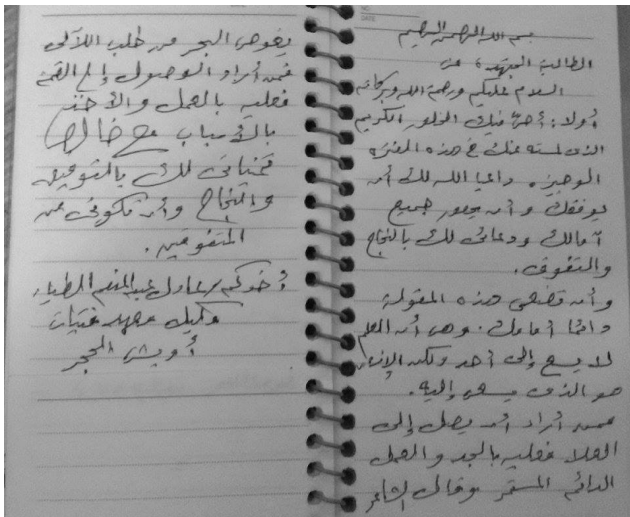 بسم الله الرحمن الرحيم
الطالبة المجتهدة
السلام عليكم ورحمة الله وبركاته
أولا: أحيي فيك الخلق الكريم
الذى لمسته عنك فى هذه الفترة
الوجيزة. داعيا الله لك أن
يوفقك وأن يحقق جميع
آمالك ودعائى لك بالنجاح
والتفوق.
وأن تضعى هذه المقولة
دائما أمامك. وهى أن العلم
لا يسعى إلى أحد ولكن الإنسان
هو الذى يسعى إليه.
فمن أراد أن يصل إلى
العلا فعليه بالجد والعمل
الدائم المستمر وقال الشاعر
يغوص البحر من طلب اللآلى
فمن أراد الوصول إلى القمة
فعليه بالعمل والأخذ
بالأسباب مع خالص
تمنياتى لك بالتوفيق
والنجاح وأن تكونى من
المتفوقين.
أخوكم / عادل عبد المنعم الطيار
وكيل معهد فتيات
أويش الحجر